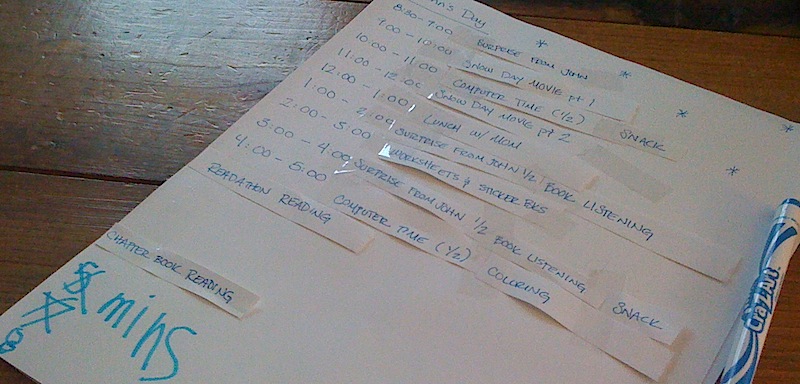 Day
8:30 - 9:00 SURPRISE FROM JOHN *
9:00 - 10:00 SNOW DAY MOVIE pt 1 *
10:00 - 11:00 COMPUTER TIME (1/2) SNACK *
11:00 - 12:00 SNOW DAY MOVIE pt 2 *
12:00 - 1:00 LUNCH W/ MOM *
1:00 - 2:00 SURPRISE FROM JOHN 1/2 BOOK LISTENING
2:00 - 3:00 WORKSHEETS & STICKER BKS
3:00 - 4:00 SURPRISE FROM JOHN 1/2 BOOK LISTENING SNACK
4:00 - 5:00 COMPUTER TIME (1/2) COLORING
READATHON READING
CHAPTER BOOK READING
mins
CraZArt